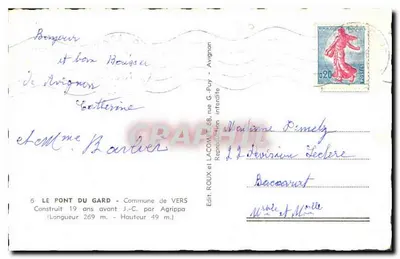 Bonjour
et bon Baiser
de Avignon
Catherine
et Mme Barbier
6 LE PONT DU GARD - Commune de VERS
Construit 19 ans avant J.-C. par Agrippa
(Longueur 269 m. - Hauteur 49 m.)
Edit. ROUX et LACOMBE, 28, rue G.-Puy - Avignon
Reproduction interdite
0,20
Madame
22 Division Leclerc
Baccarat
Mthe et Mlle